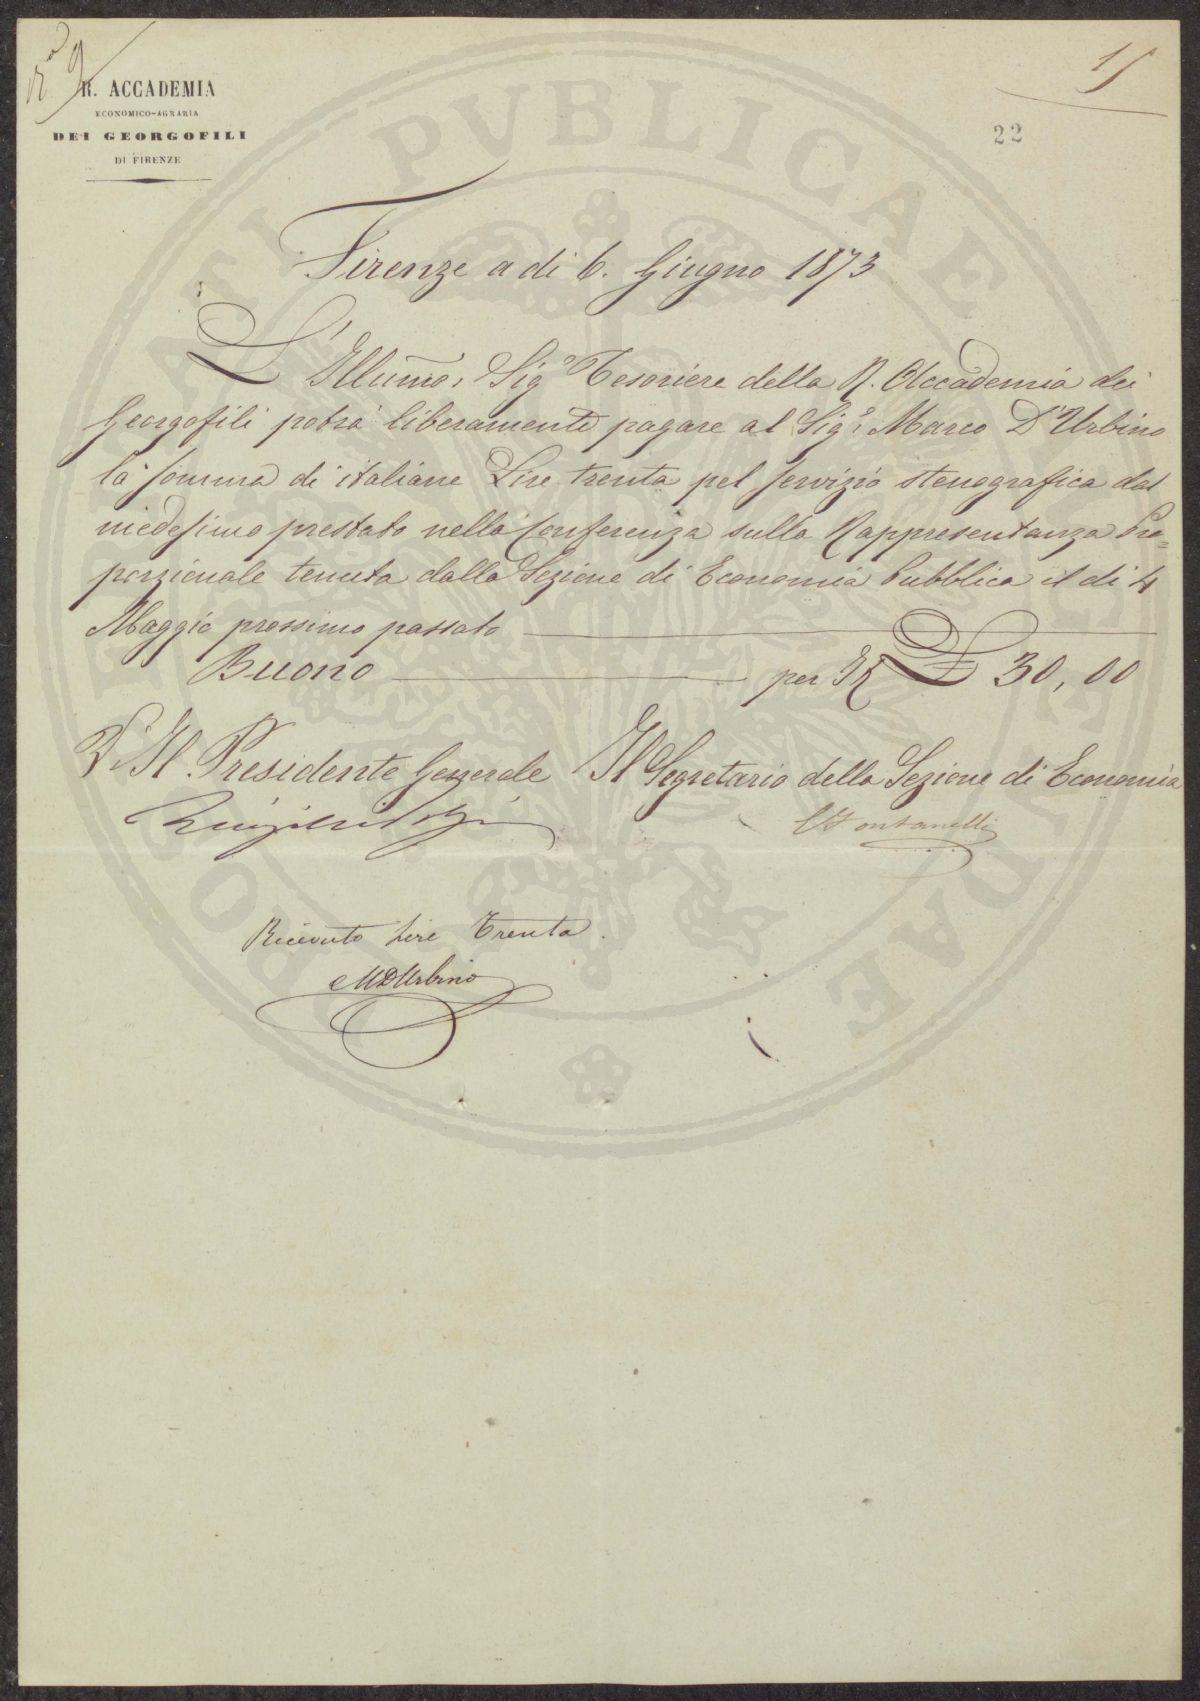 R. ACCADEMIA
ECONOMICO-AGRARIA
DEI GEORGOFILI
DI FIRENZE
15
22
Firenze a di 6. Giugno 1873
L'Illumo, Sigo Tesoriere della R. Accademia dei
Georgofili potrà liberamente pagare al Sigr Marco D'Urbino
la somma di italiane Lire trenta pel servizio stenografica dal
medesimo prestato nella Conferenza sulla Rappresentanza Pro=
porzionale tenuta dalla Sezione di Economia Pubblica il di 4
Maggio prossimo passato
Buono per It £ 30,00
Vo Il Presidente Generale Il Segretario della Sezione di Economia
C Fontanelli
Ricevuto Lire Trenta.
M D'Urbino
PVBLICAE